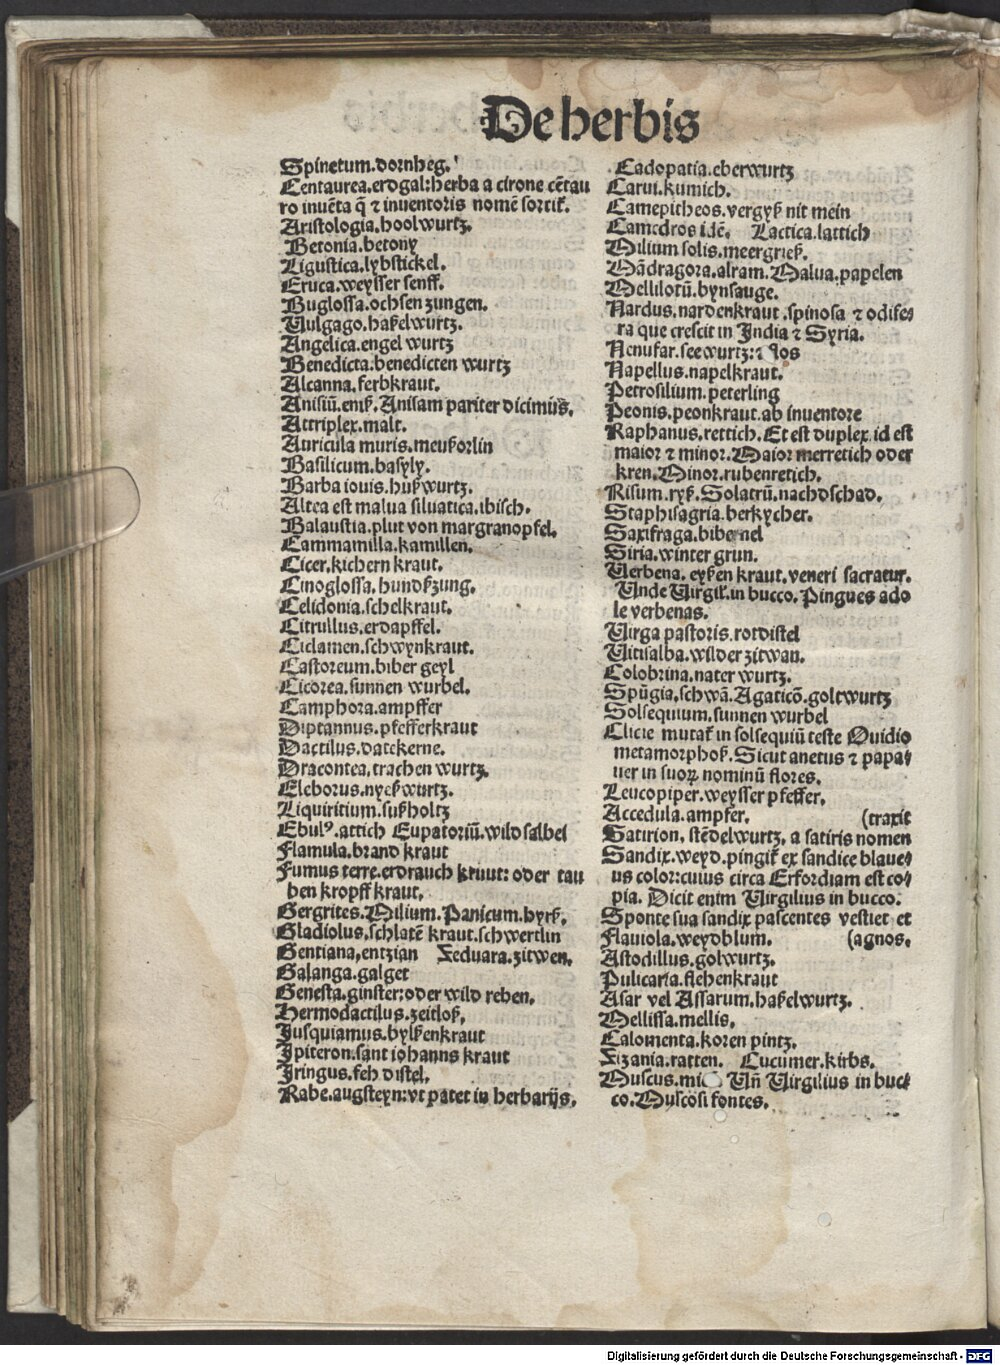 De herbis
Spinetum.dornheg.
Centaurea.erdgal:herba a cirone cẽtau
ro inuẽta q̃ ⁊ inuentoris nomẽ sortit᷑.
Aristologia.hoolwurtz.
Betonia.betony
Ligustica.lybstickel.
Eruca.weysser senff.
Buglossa.ochsen zungen.
Vulgago.haßelwurtz.
Angelica.engel wurtz
Benedicta.benedicten wurtz
Alcanna.ferbkraut.
Anisiũ.eniß.Anisam pariter dicimus.
Attriplex.malt.
Auricula muris.meußorlin
Basilicum.basyly.
Barba iouis.hußwurtz.
Altea est malua siluatica.ibisch.
Balaustia.plut von margranopfel.
Cammamilla.kamillen.
Cicer.kichern kraut.
Cinoglossa.hundßzung.
Celidonia.schelkraut.
Citrullus.erdapffel.
Ciclamen.schwynkraut.
Castoreum.biber geyl
Cicorea.sunnen wurbel.
Camphora.ampffer
Diptannus.pfefferkraut
Dactilus.datckerne.
Dracontea.trachen wurtz.
Eleborus.nyeßwurtz.
Liquiritium.sußholtz
Ebulꝰ.attich Eupatoriũ.wild salbei
Flamula.brand kraut
Fumus terre.erdrauch kruut: oder tau
ben kropff kraut.
Gergrites.Milium.Panicum.hyrß.
Gladiolus.schlatẽ kraut.schwertlin
Gentiana.entzian Zeduara.zitwen.
Galanga.galget
Genesta.ginster:oder wild reben.
Hermodactilus.zeitloß.
Jusquiamus.bylßenkraut
Jpiteron.sant iohanns kraut
Jringus.feh distel.
Rabe.augsteyn:vt patet in herbarijs.
Cadopatia.eberwurtz
Carui.kumich.
Camepitheos.vergyß nit mein
Camedros idẽ. Lactica.lattich
Milium solis.meergrieß.
Mãdragora.alram.Malua.papelen
Mellilotũ.bynsauge.
Nardus.nardenkraut.spinosa ⁊ odife⸗
ra que crescit in India ⁊ Syria.
Nenufar.seewurtz:⁊ flos
Napellus.napelkraut.
Petrosilium.peterling
Peonis.peonkraut.ab inuentore
Raphanus.rettich. Et est duplex.id est
maior ⁊ minor.Maior merretich oder
kren.Minor.rubenretich.
Risum.ryß.Solatrũ.nachdschad.
Staphisagria.berkycher.
Saxifraga.bibernel
Siria.winter grun.
Verbena.eyßen kraut.veneri sacratur.
Vnde Virgil᷑.in bucco.Pingues ado
le verbenas.
Virga pastoris.rotdistel
Vitisalba.wilder zitwan.
Colobrina.nater wurtz.
Spũgia.schwã.Agaticõ.goltwurtz
Solsequium.sunnen wurbel
Clicie mutat᷑ in solsequiũ teste Ouidio
metamorphoß.Sicut anetus ⁊ papa⸗
uer in suoꝝ nominũ flores.
Leucopiper.weysser pfeffer.
Accedula.ampfer. (traxit
Satirion.stẽdelwurtz.a satiris nomen
Sandix.weyd.pingit᷑ ex sandice blaue⸗
us color:cuius circa Erfordiam est co⸗
pia. Dicit enim Virgilius in bucco.
Sponte sua sandix pascentes vestiet et
Flauiola.weydblum. (agnos.
Astodillus.golwurtz.
Pulicaria.flehenkraut
Asar vel Assarum.haßelwurtz.
Mellissa.mellis.
Calomenta.koren pintz.
Zizania.ratten. Cucumer.kirbs.
Muscus. Vñ Virgilius in buc⸗
co.Muscosi fontes.
Digitalisierung gefördert durch die Deutsche Forschungsgemeinschaft - DFG